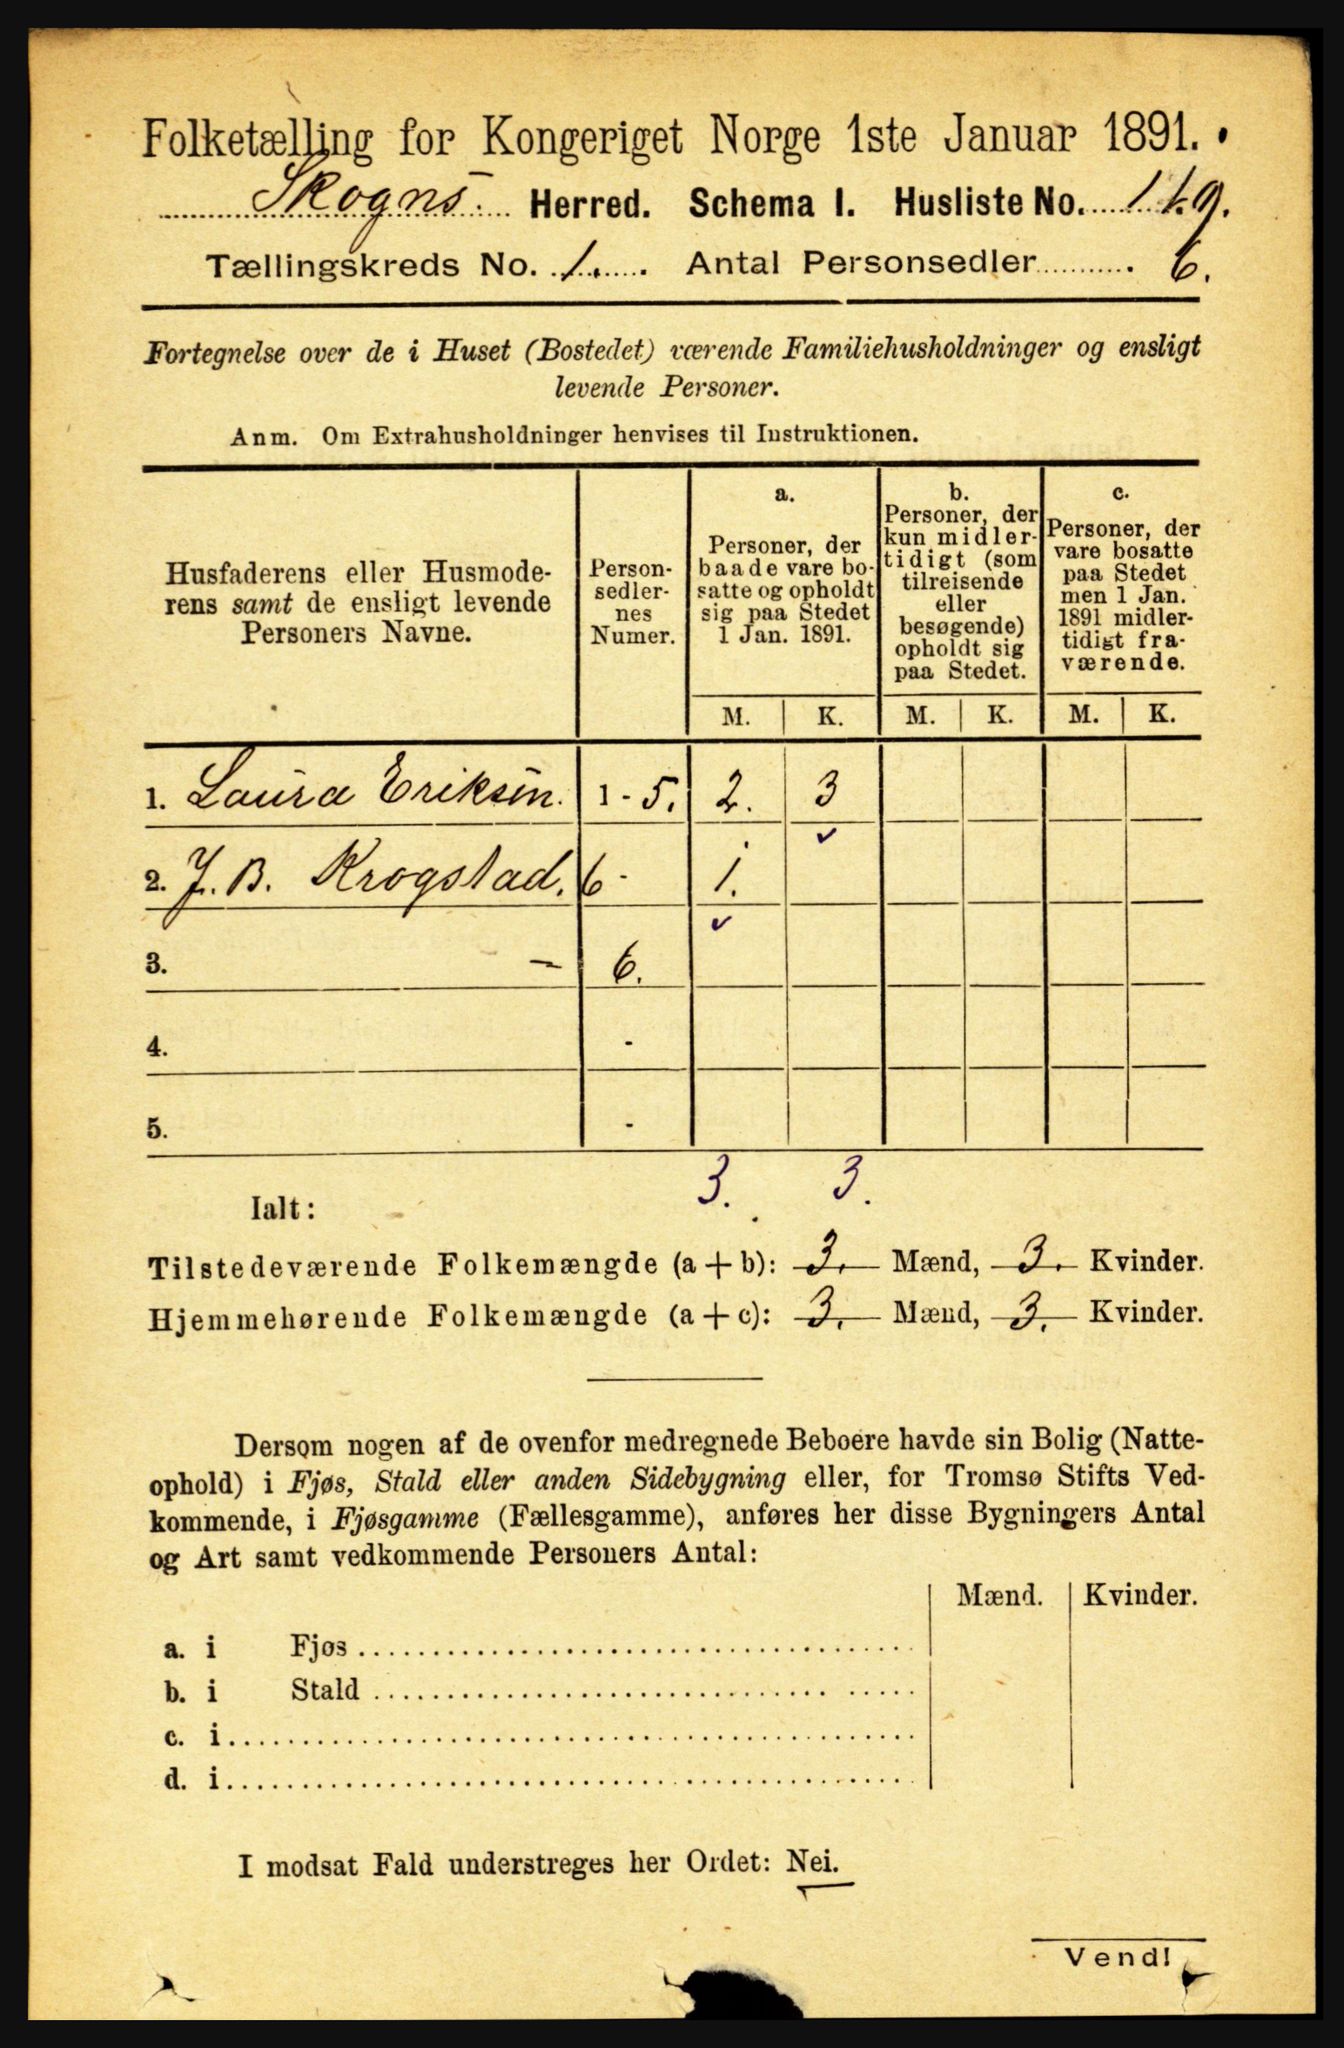 Folketælling for Kongeriget Norge 1ste Januar 1891.
Skogns Herred. Schema I. Husliste No. 149.
Tællingskreds No. 1. Antal Personsedler 6.
Fortegnelse over de i Huset (Bostedet) værende Familiehusholdninger og ensligt
levende Personer.
Anm. Om Extrahusholdninger henvises til Instruktionen.
Husfaderens eller Husmode-
rens samt de ensligt levende
Personers Navne.
Person-
sedler-
nes
Numer.
a.
Personer, der
baade vare bo-
satte og opholdt
sig paa Stedet
1 Jan. 1891.
b.
Personer, der
kun midler-
tidigt (som
tilreisende
eller
besøgende)
opholdt sig
paa Stedet.
c.
Personer, der
vare bosatte
paa Stedet
men 1 Jan.
1891 midler-
tidigt fra-
værende.
M. K. M. K. M. K.
1. Laura Eriksen. 1 - 5. 2. 3
2. J. B. Krogstad. 6 - 1.
3. - 6.
4. -
5. -
3. 3.
Ialt:
Tilstedeværende Folkemængde (a + b): 3. Mænd, 3. Kvinder.
Hjemmehørende Folkemængde (a + c): 3. Mænd, 3. Kvinder.
Dersom nogen af de ovenfor medregnede Beboere havde sin Bolig (Natte-
ophold) i Fjøs, Stald eller anden Sidebygning eller, for Tromsø Stifts Ved-
kommende, i Fjøsgamme (Fællesgamme), anføres her disse Bygningers Antal
og Art samt vedkommende Personers Antal:
Mænd. Kvinder.
a. i Fjøs
b. i Stald
c. i
d. i
I modsat Fald understreges her Ordet: Nei.
Vend!